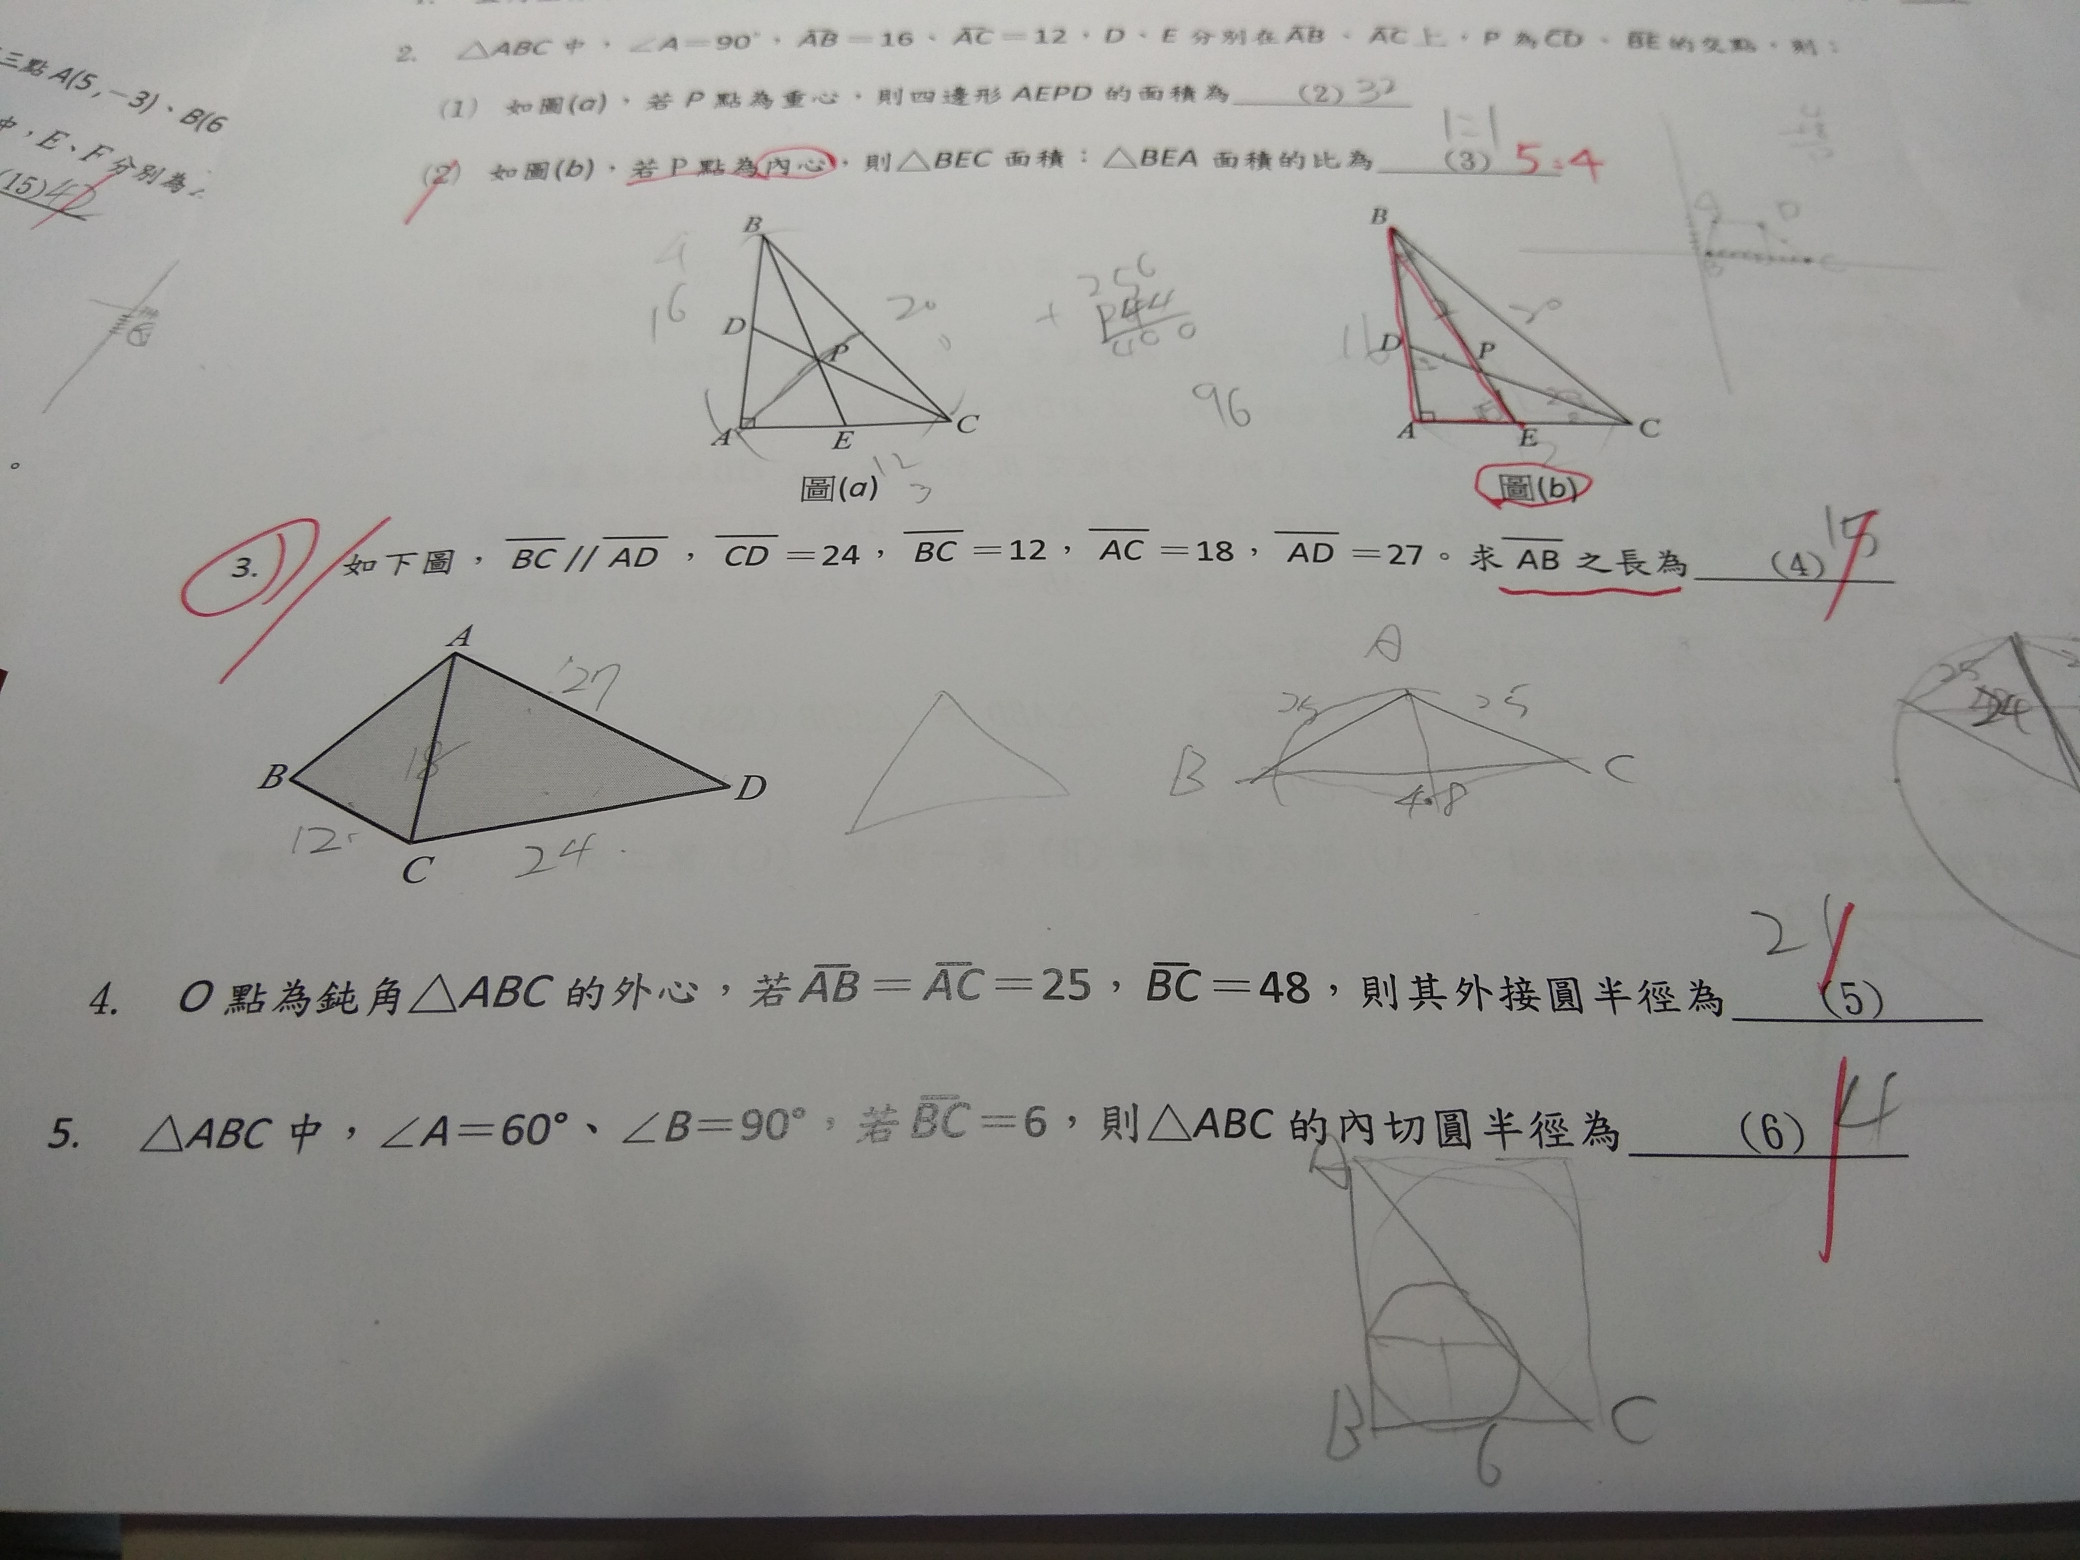 三點 A(5,－3)、B(6
中，E、F 分別為
(15)42
2. △ABC 中，∠A＝90°，AB＝16、AC＝12，D、E 分別在 AB、AC 上，P 為 CD、BE 的交點，則：
(1) 如圖(a)，若 P 點為重心，則四邊形 AEPD 的面積為 (2) 32
1:1
(2) 如圖(b)，若 P 點為內心，則△BEC 面積：△BEA 面積的比為 (3) 5:4
B
D
P
A
E
C
16
20
12
3
圖(a)
256
+ 144
400
96
B
D
P
A
E
C
16
20
12
圖(b)
3. 如下圖，BC // AD，CD＝24，BC＝12，AC＝18，AD＝27。求 AB 之長為 (4) 15
A
B
C
D
27
18
12
24
A
B
C
25
25
4.8
25
24
4. O 點為鈍角△ABC 的外心，若 AB＝AC＝25，BC＝48，則其外接圓半徑為 (5)
21
5. △ABC 中，∠A＝60°、∠B＝90°，若 BC＝6，則△ABC 的內切圓半徑為 (6) 4
A
B
C
6